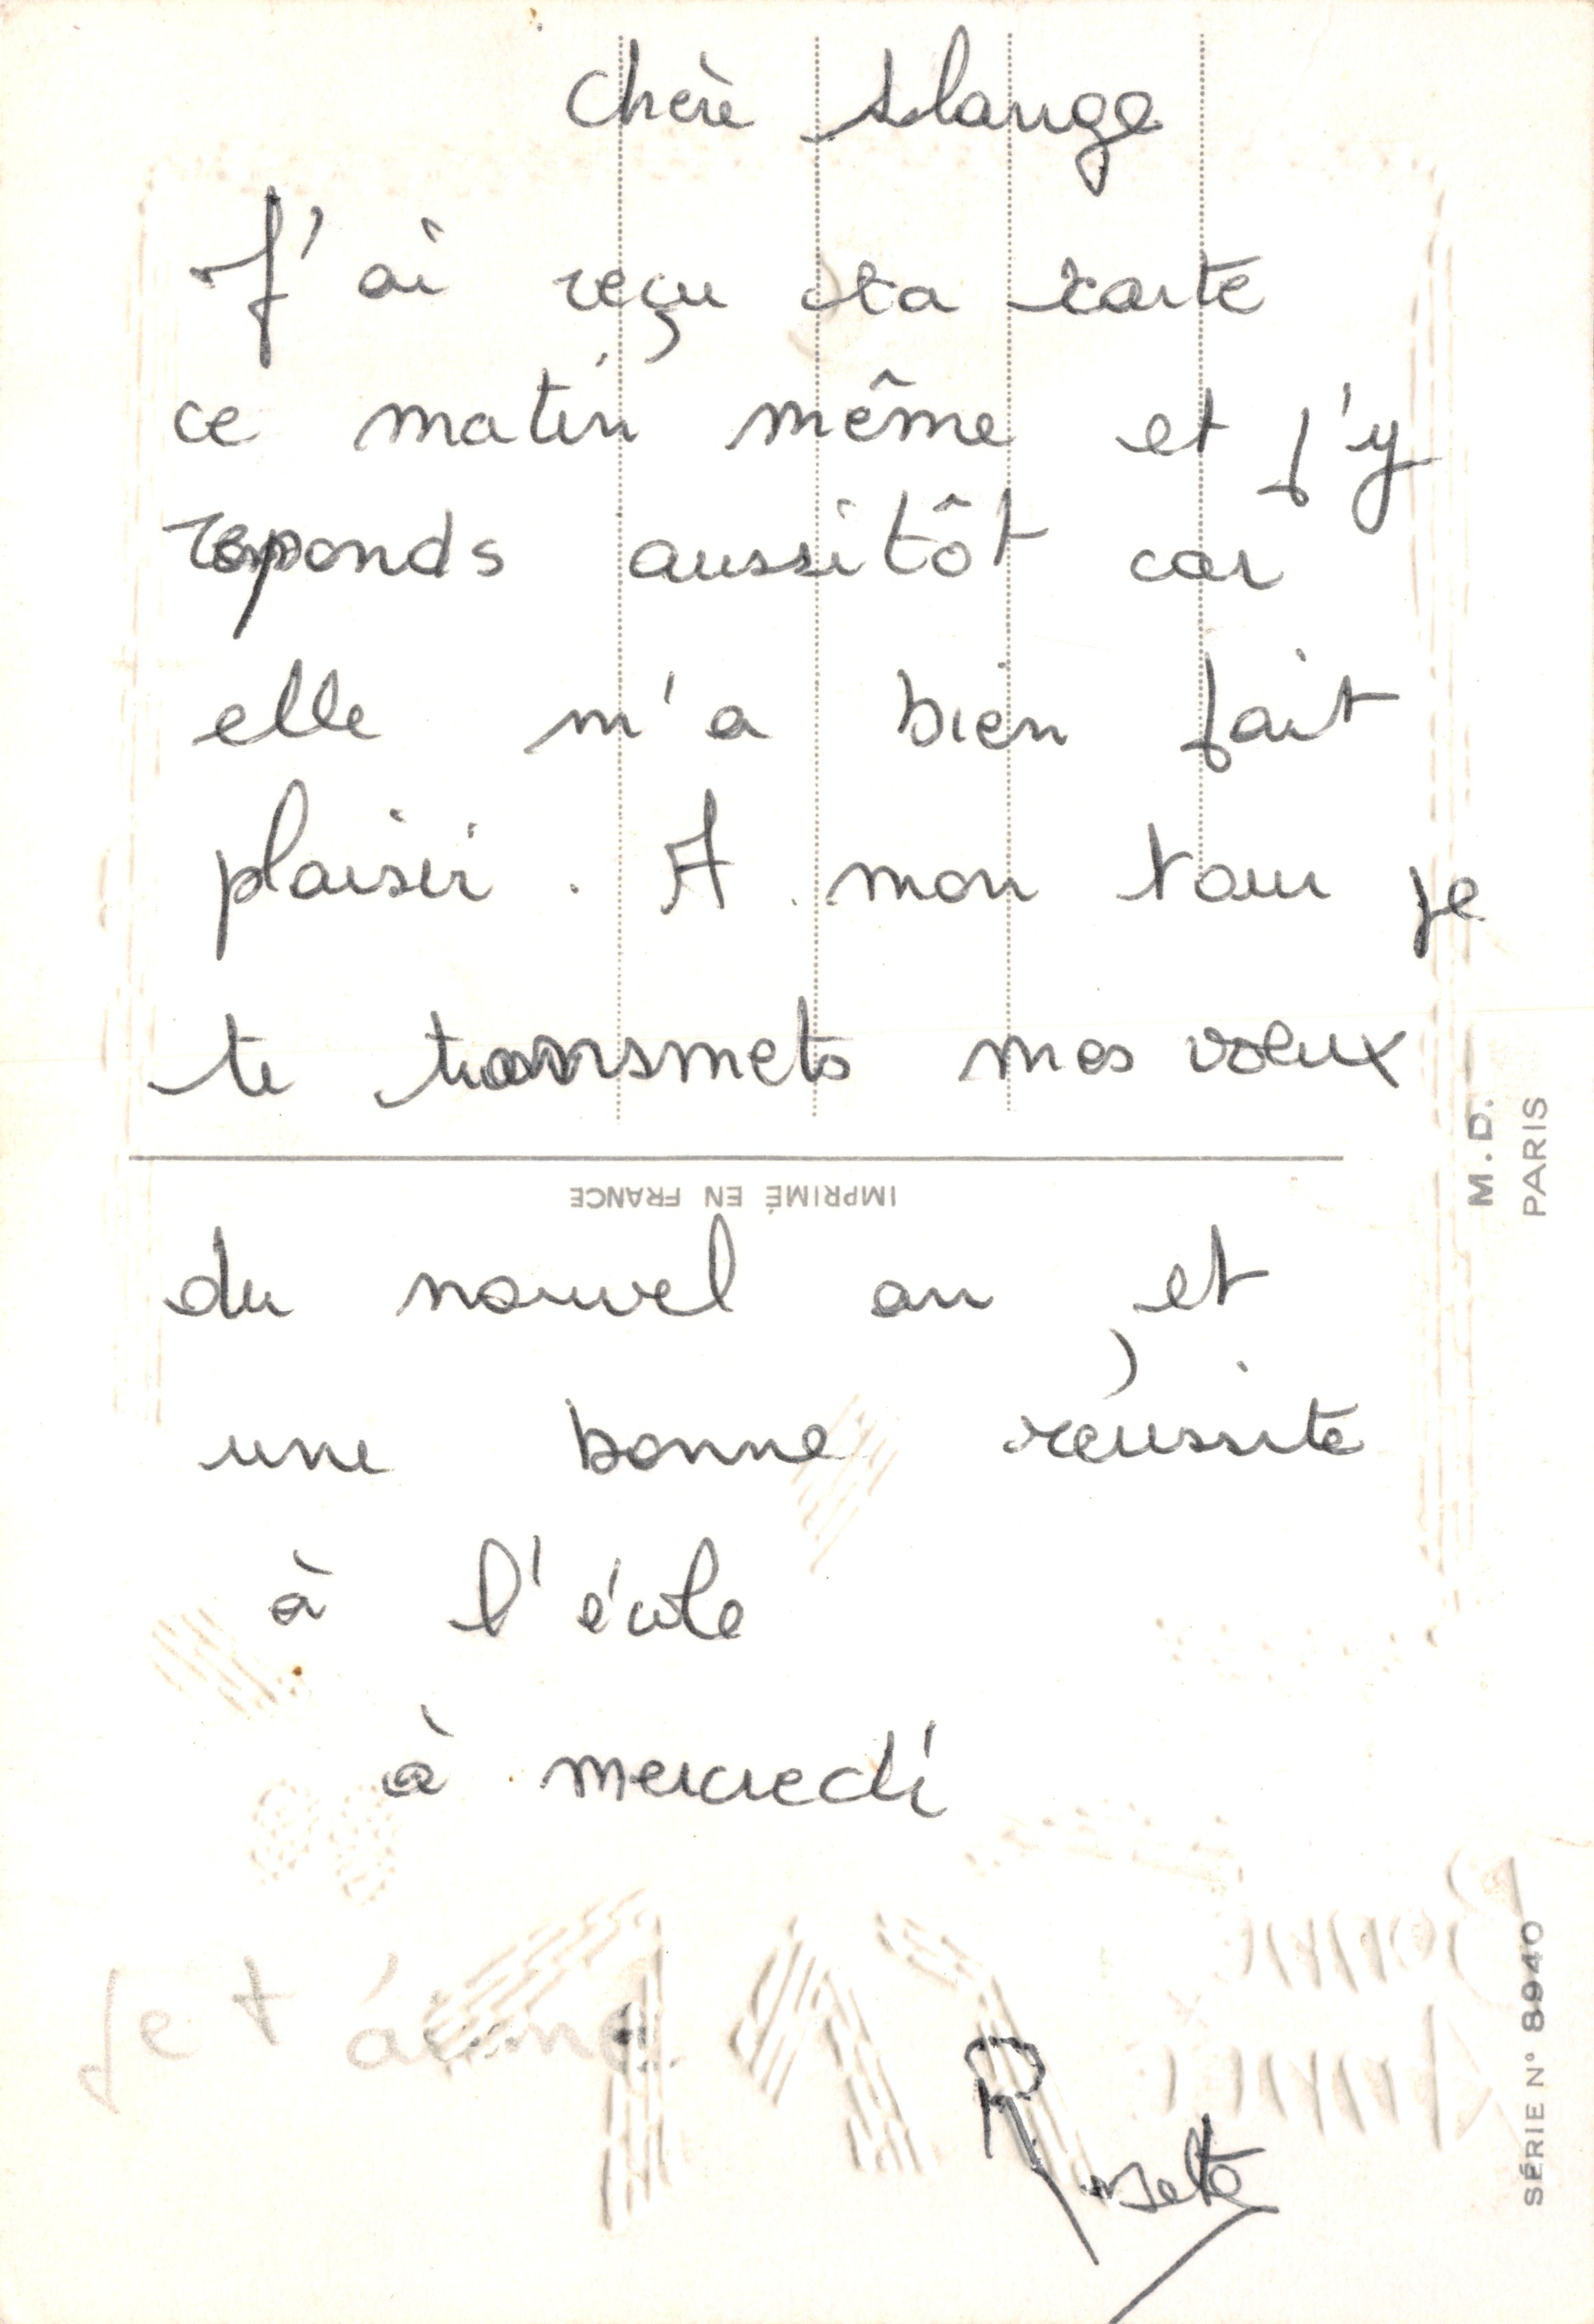 Chère
J'ai reçu ta carte
ce matin même et j'y
reponds aussitôt car
elle m'a bien fait
plaisir. A mon tour je
te transmets mes voeux
IMPRIMÉ EN FRANCE
M.D.
PARIS
du nouvel an et
une bonne réussite
à l'école
à mercredi
Je t'aime
Rosette
SÉRIE N° 8940